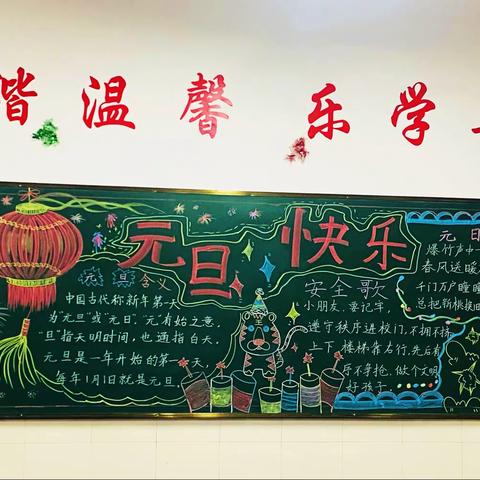 谐温馨 乐学
元旦 快乐
元旦含义
中国古代称新年第一天
为"元旦"或"元日"，"元"有始之意，
"旦"指天明时间，也通指白天，
元旦是一年开始的第一天，
每年1月1日就是元旦。
安全歌
小朋友，要记牢，
遵守秩序进校门，不拥不挤
上下楼梯靠右行，先后有
序不争抢，做个文明
好孩子。
元日
爆竹声中一
春风送暖
千门万户曈曈
总把新桃换旧